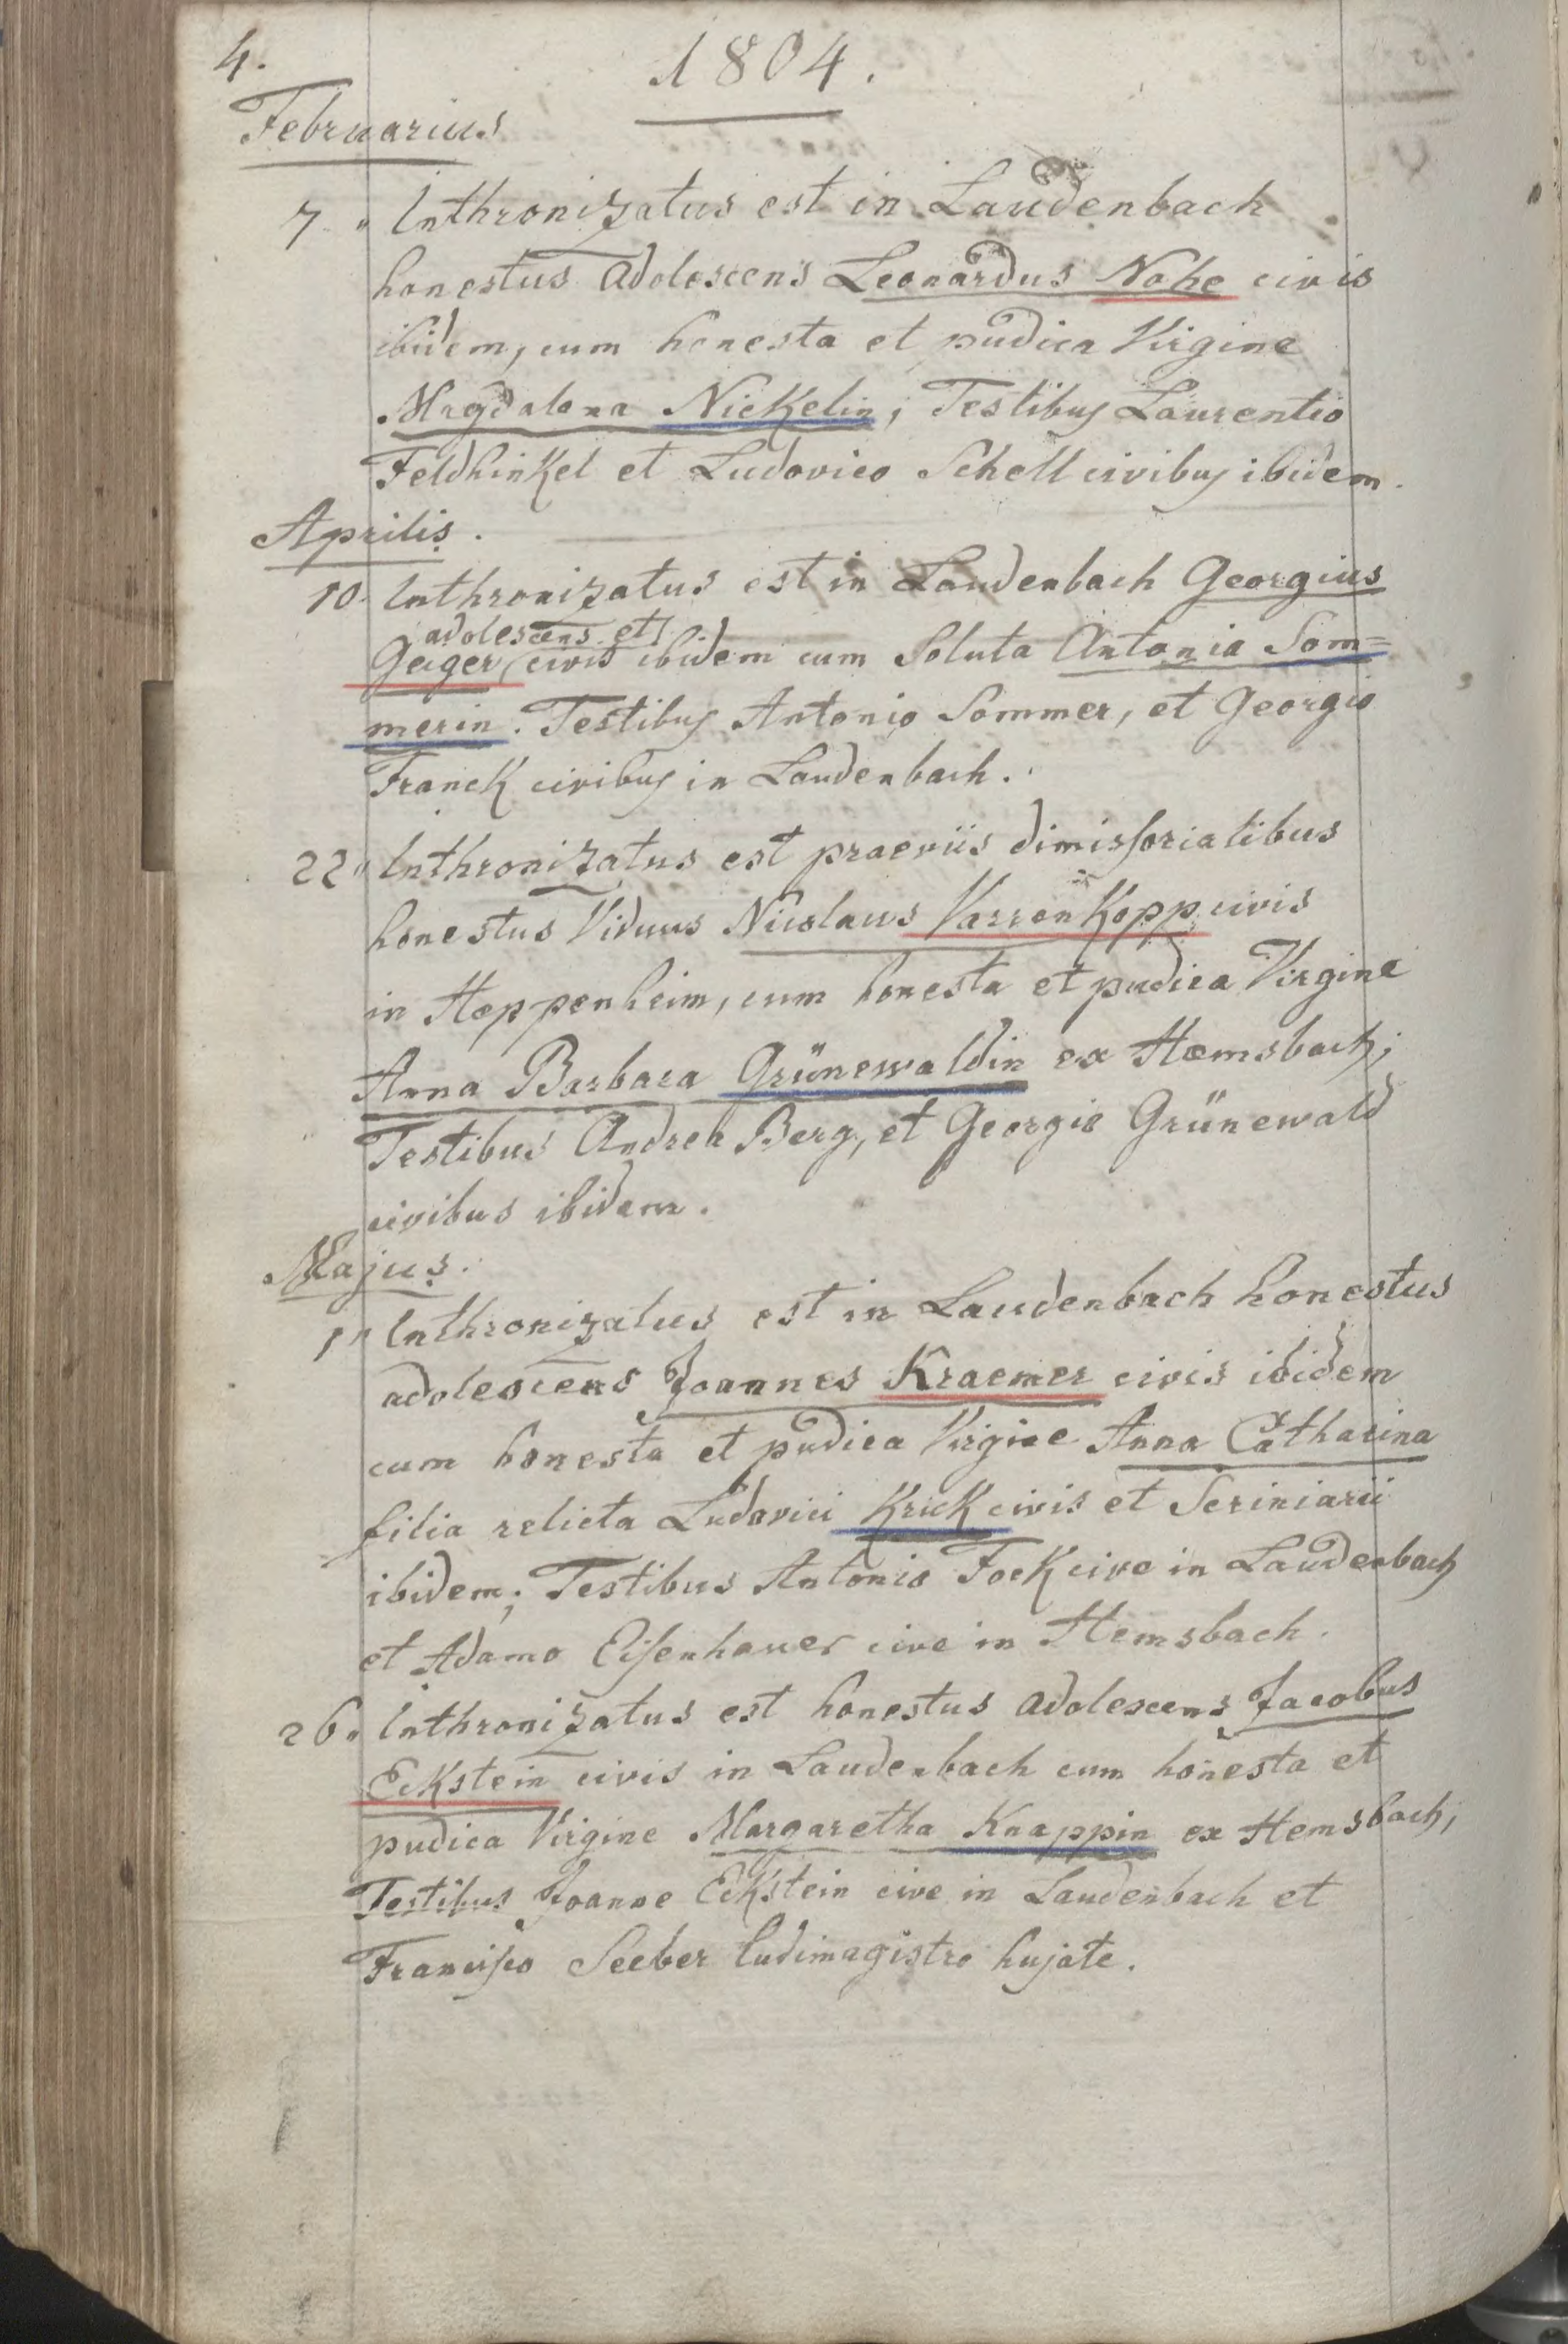 4.
1804.
Februarius
7. Inthronizatus est in Laudenbach
honestus adolescens Leonardus Nohe civis
ibidem, cum honesta et pudica Virgine
Magdalena Nickelin; Testibus Laurentio
Feldhinkel et Ludovico Schell civibus ibidem.
Aprilis.
10. Inthronizatus est in Laudenbach Georgius
adolescens et
Geiger, civis ibidem cum Soluta Antonia Som=
merin. Testibus Antonio Sommer, et Georgio
Franck civibus in Laudenbach.
22" Inthronizatus est praeviis dimissorialibus
honestus Viduus Nicolaus Varrenkopp civis
in Heppenheim, cum honesta et pudica Virgine
Anna Barbara Grünewaldin ex Hemsbach;
Testibus Andrea Berg, et Georgio Grünewald
civibus ibidem.
Majus.
1" Inthronizatus est in Laudenbach honestus
adolescens Joannes Kraemer civis ibidem
cum honesta et pudica Virgine Anna Catharina
filia relicta Ludovici Krick civis et Scriniarii
ibidem; Testibus Antonio Fock cive in Laudenbach
et Adamo Eisenhauer cive in Hemsbach.
26. Inthronizatus est honestus adolescens Jacobus
Eckstein civis in Laudenbach cum honesta et
pudica Virgine Margaretha Knappin ex Hemsbach;
Testibus Joanne Eckstein cive in Laudenbach et
Francisco Seeber ludimagistro hujate.